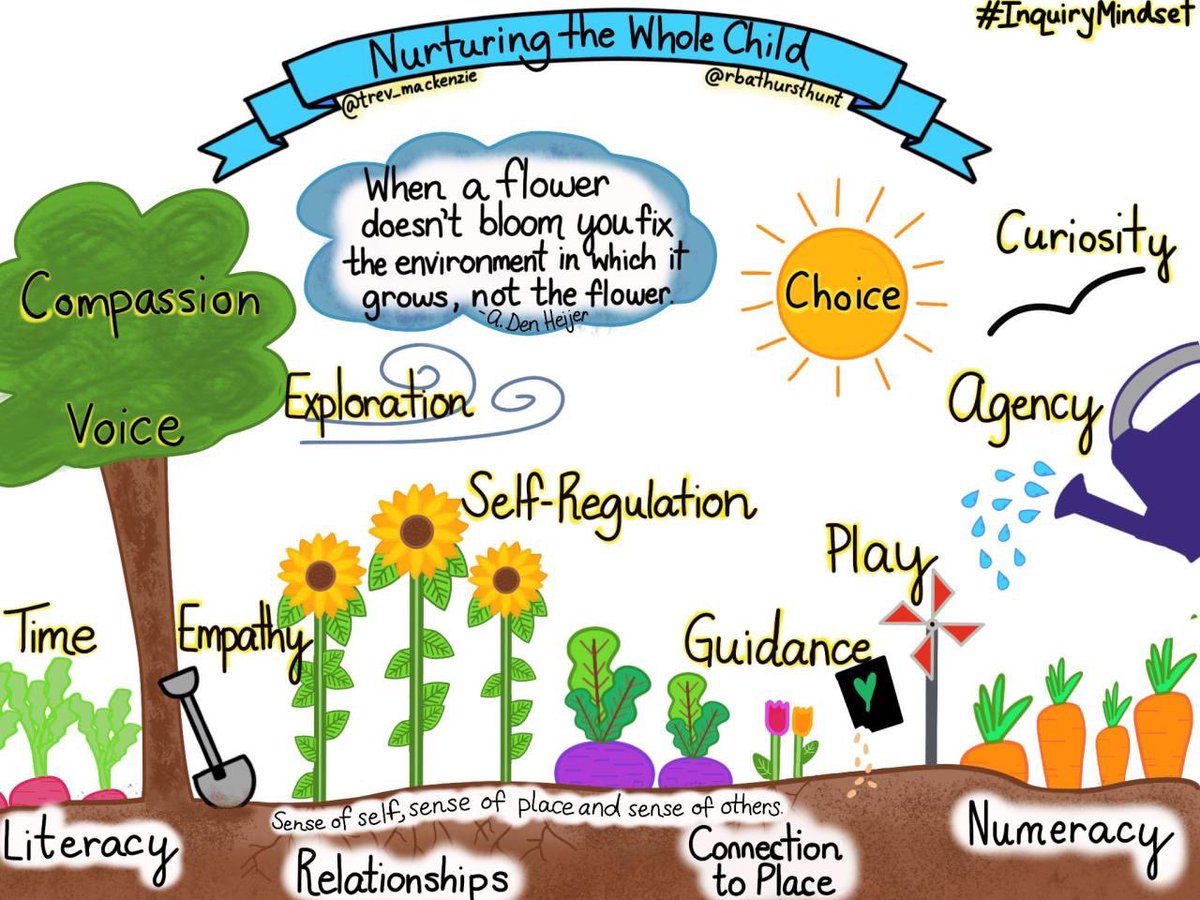 #InquiryMindset
Nurturing the Whole Child
@trev_mackenzie
@rbathursthunt
When a flower
doesn't bloom you fix
the environment in which it
grows, not the flower.
-A. Den Heijer
Choice
Curiosity
Compassion
Voice
Exploration
Agency
Self-Regulation
Play
Time
Empathy
Guidance
Sense of self, sense of place and sense of others.
Literacy
Relationships
Connection
to Place
Numeracy